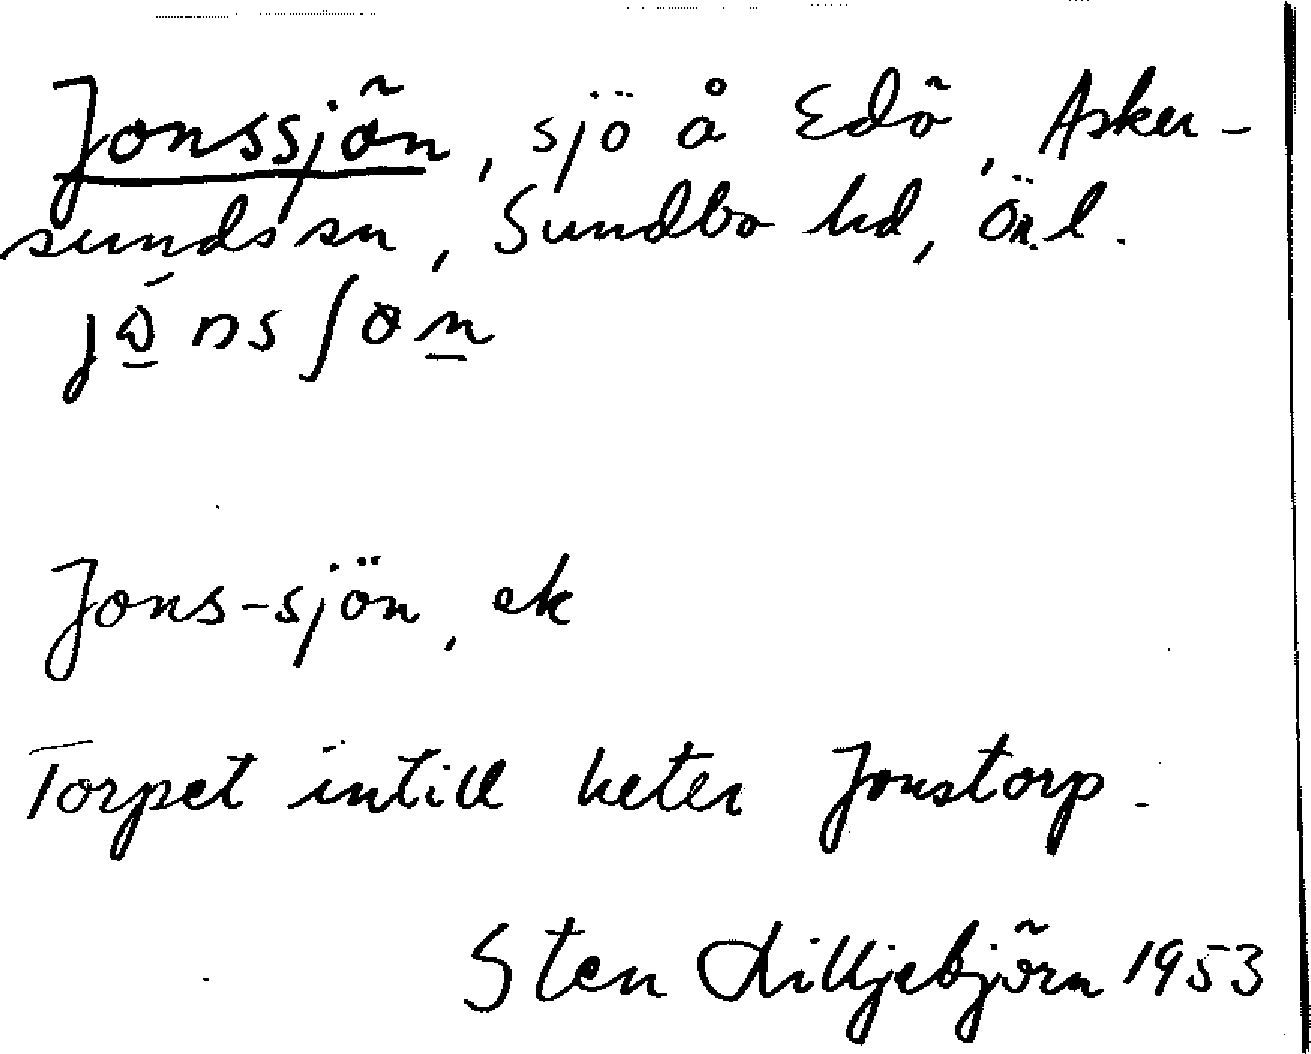 Jonssjön, sjö å Edö, Asker-
sunds sn, Sundbo hd, Ön.l.
Jons-sjön, ek
Torpet intill heter Jonstorp.
Sten Lilljebjörn 1953